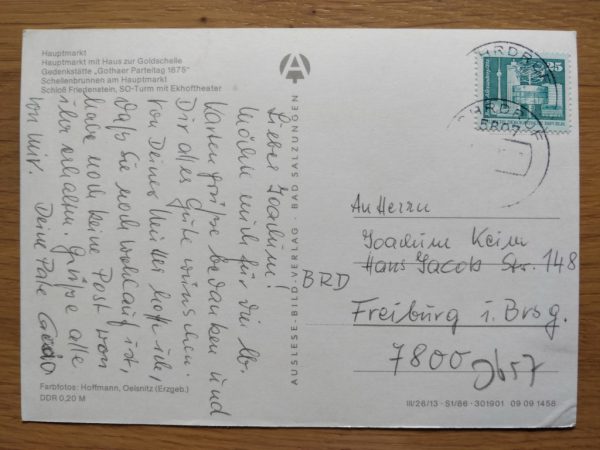 Hauptmarkt
Hauptmarkt mit Haus zur Goldschelle
Gedenkstätte „Gothaer Parteitag 1875“
Schellenbrunnen am Hauptmarkt
Schloß Friedenstein, SO-Turm mit Ekhoftheater
Lieber Joachim!
Möchte mich für die lb.
Kartengrüße bedanken und
Dir alles Gute wünschen.
Von Deiner Mutter hoffe ich,
daß Sie noch wohlauf ist,
habe noch keine Post von
ihr erhalten. Grüße alle
von mir. Deine Pate
Farbfotos: Hoffmann, Oelsnitz (Erzgeb.)
DDR 0,20 M
AUSLESE-BILD-VERLAG BAD SALZUNGEN
25
OHRDRUF
5807
An Herrn
Joachim Keim
Hans Jacob Str. 148
BRD
Freiburg i. Brsg.
7800
III/26/13 · S1/86 · 301901 09 09 1458